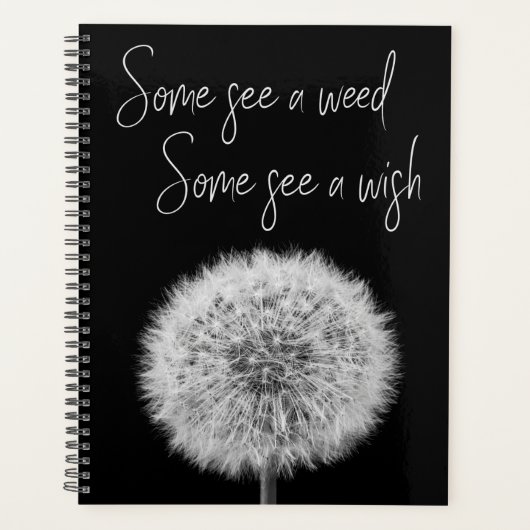 Some see a weed
Some see a wish